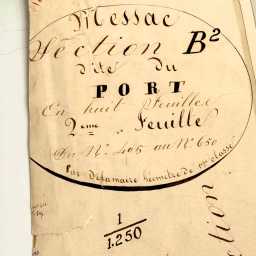 Messac
Section B²
dite du
PORT
En huit Feuilles
2ème Feuille
Du N° 465 au N° 650
Par Delamaire Géomètre de 1re classe
1
1.250